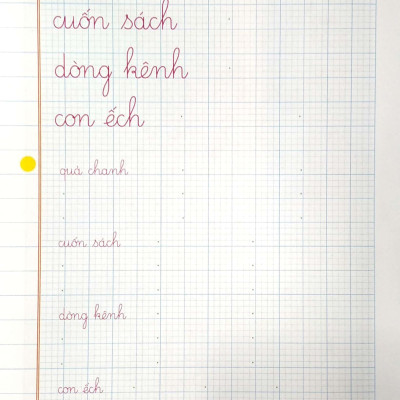 cuốn sách
dòng kênh
con ếch
quả chanh
cuốn sách
dòng kênh
con ếch